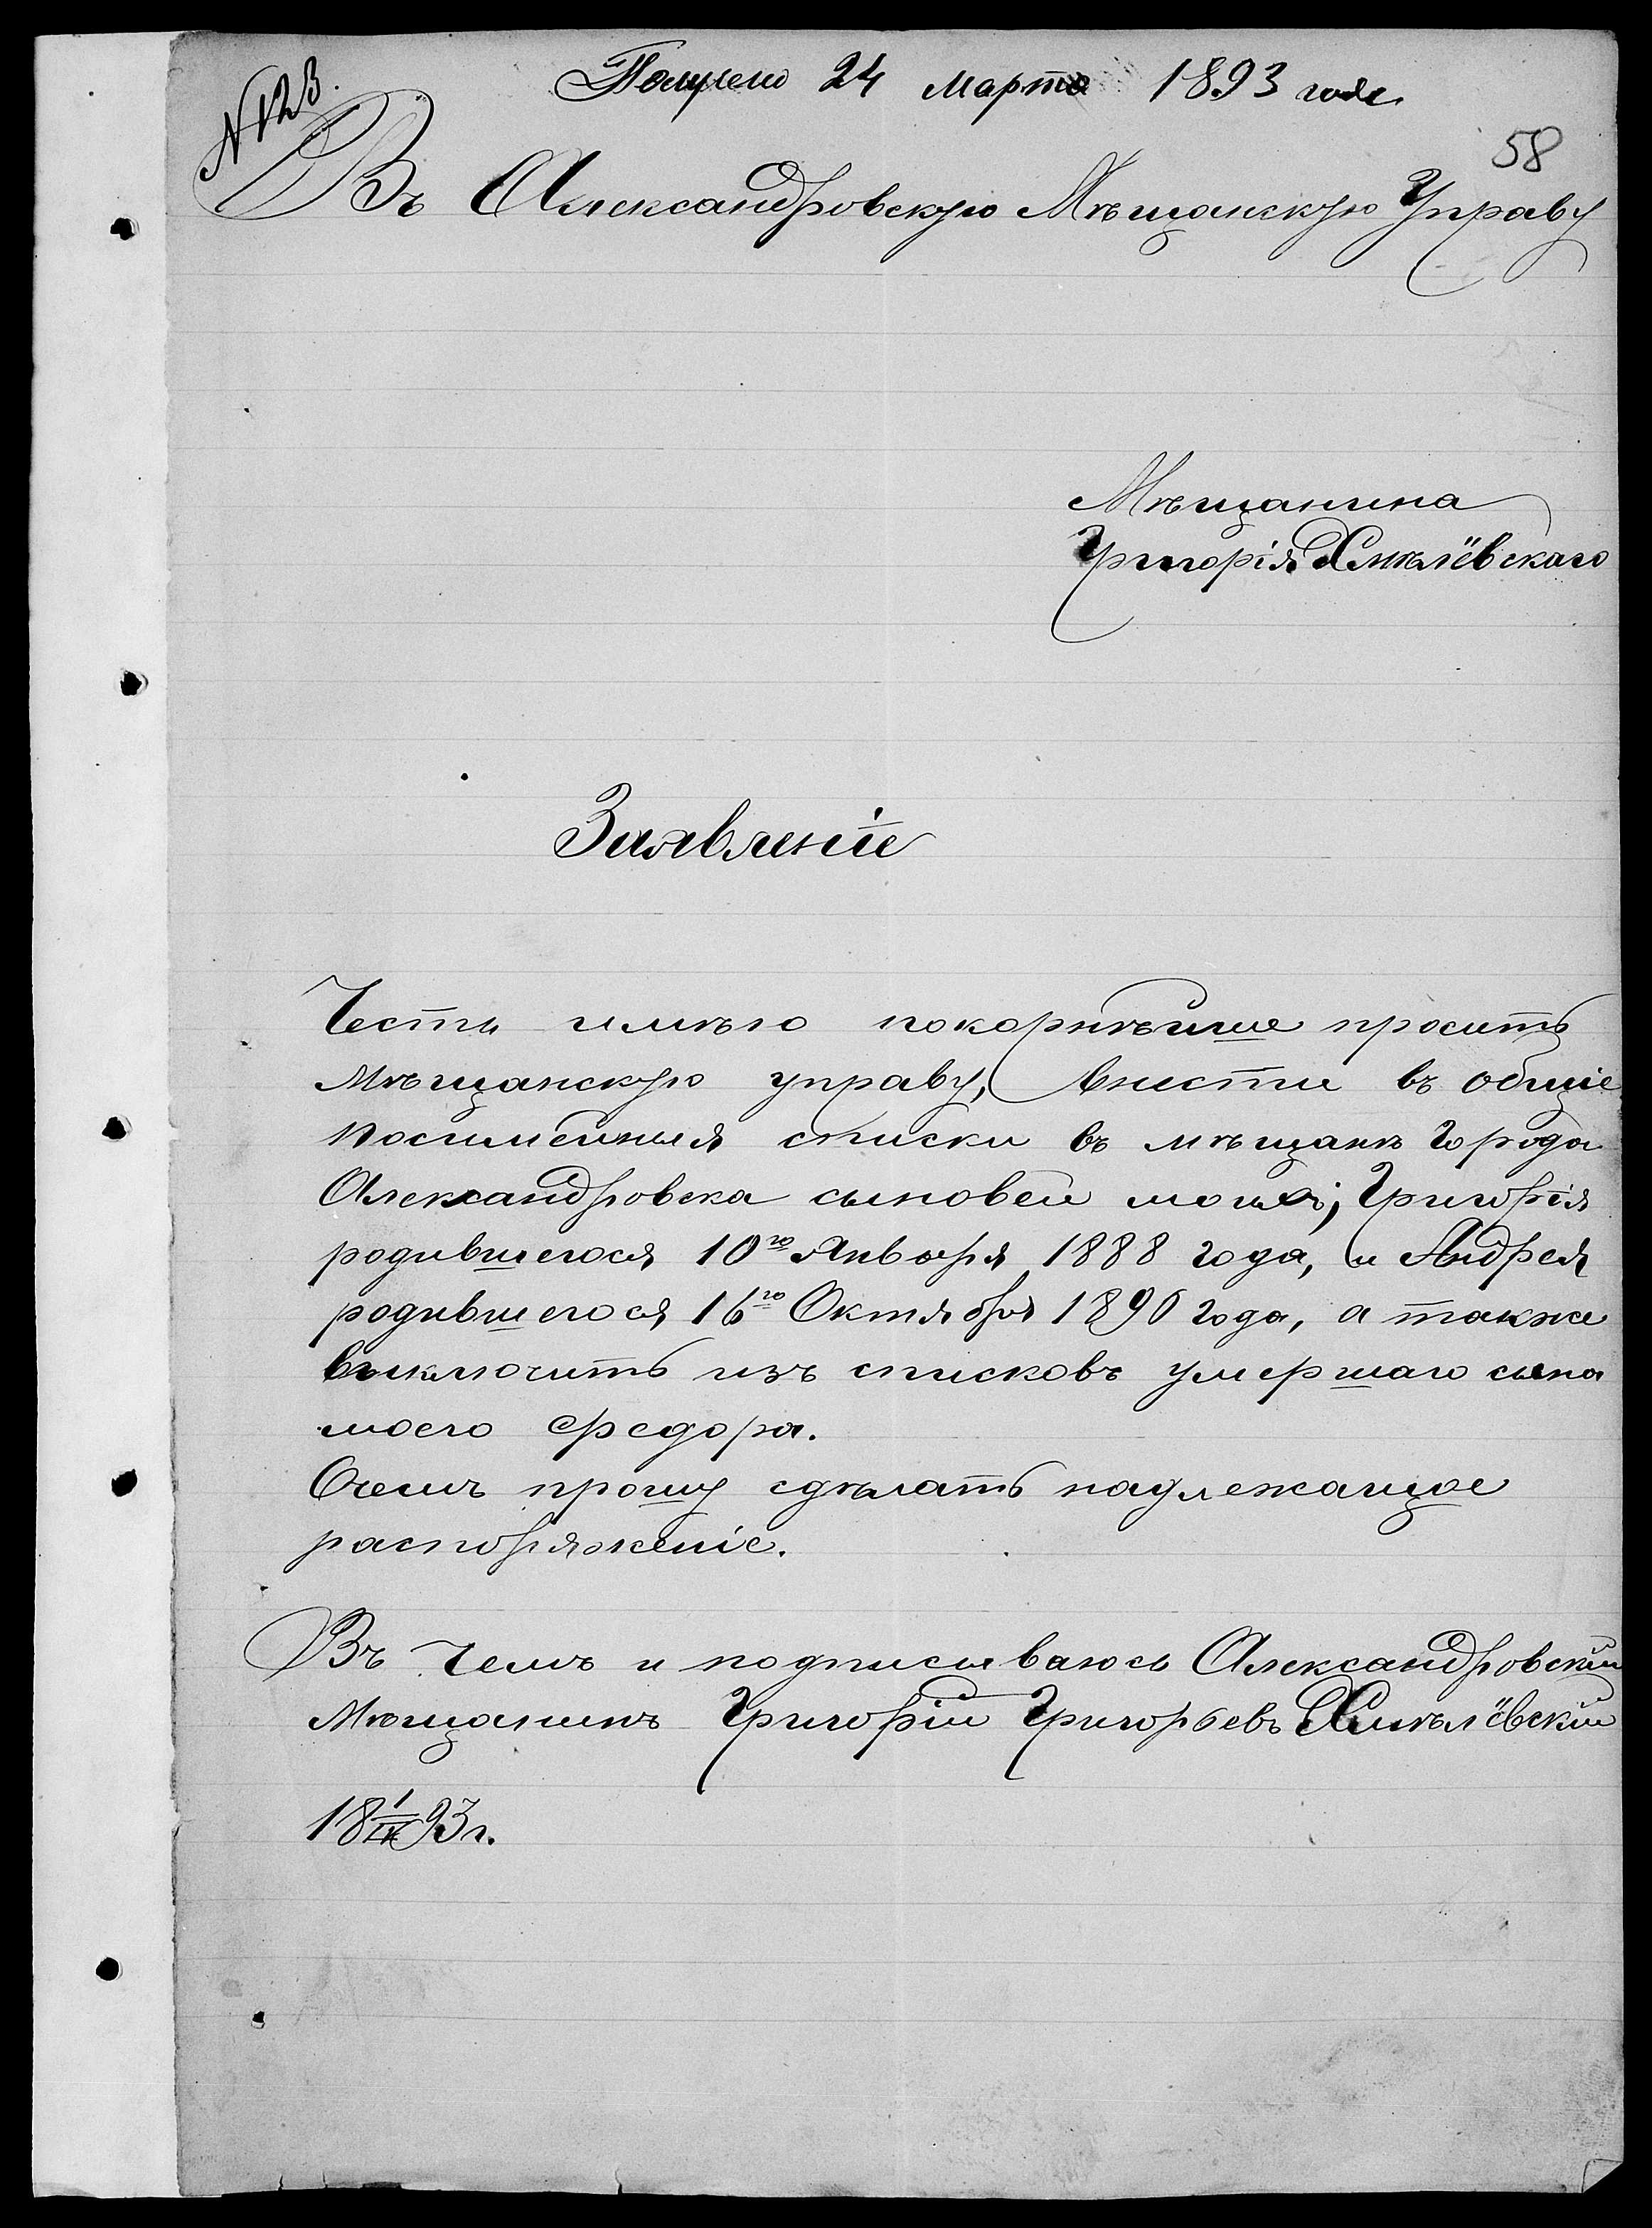 Получено 24 марта 1893 года.
N 123.
58
Въ Александровскую Мѣщанскую Управу
Мѣщанина
Григорія Хмѣлёвскаго
Заявленіе
Честь имѣю покорнѣйше просить
мѣщанскую управу, внести въ общіе
посимейныя списки въ мѣщане города
Александровска сыновей моихъ; Григорія
родившегося 10го Января 1888 года, и Андрея
родившегося 16го Октября 1890 года, а также
выключить изъ списковъ умершаго сына
моего Ѳедора.
Очемъ прошу сдѣлать надлежащое
распоряженіе.
Въ чемъ и подписываюсь Александровскій
Мѣщанинъ Григорій Григорьевъ Хмѣлёвскій
18 93 г.